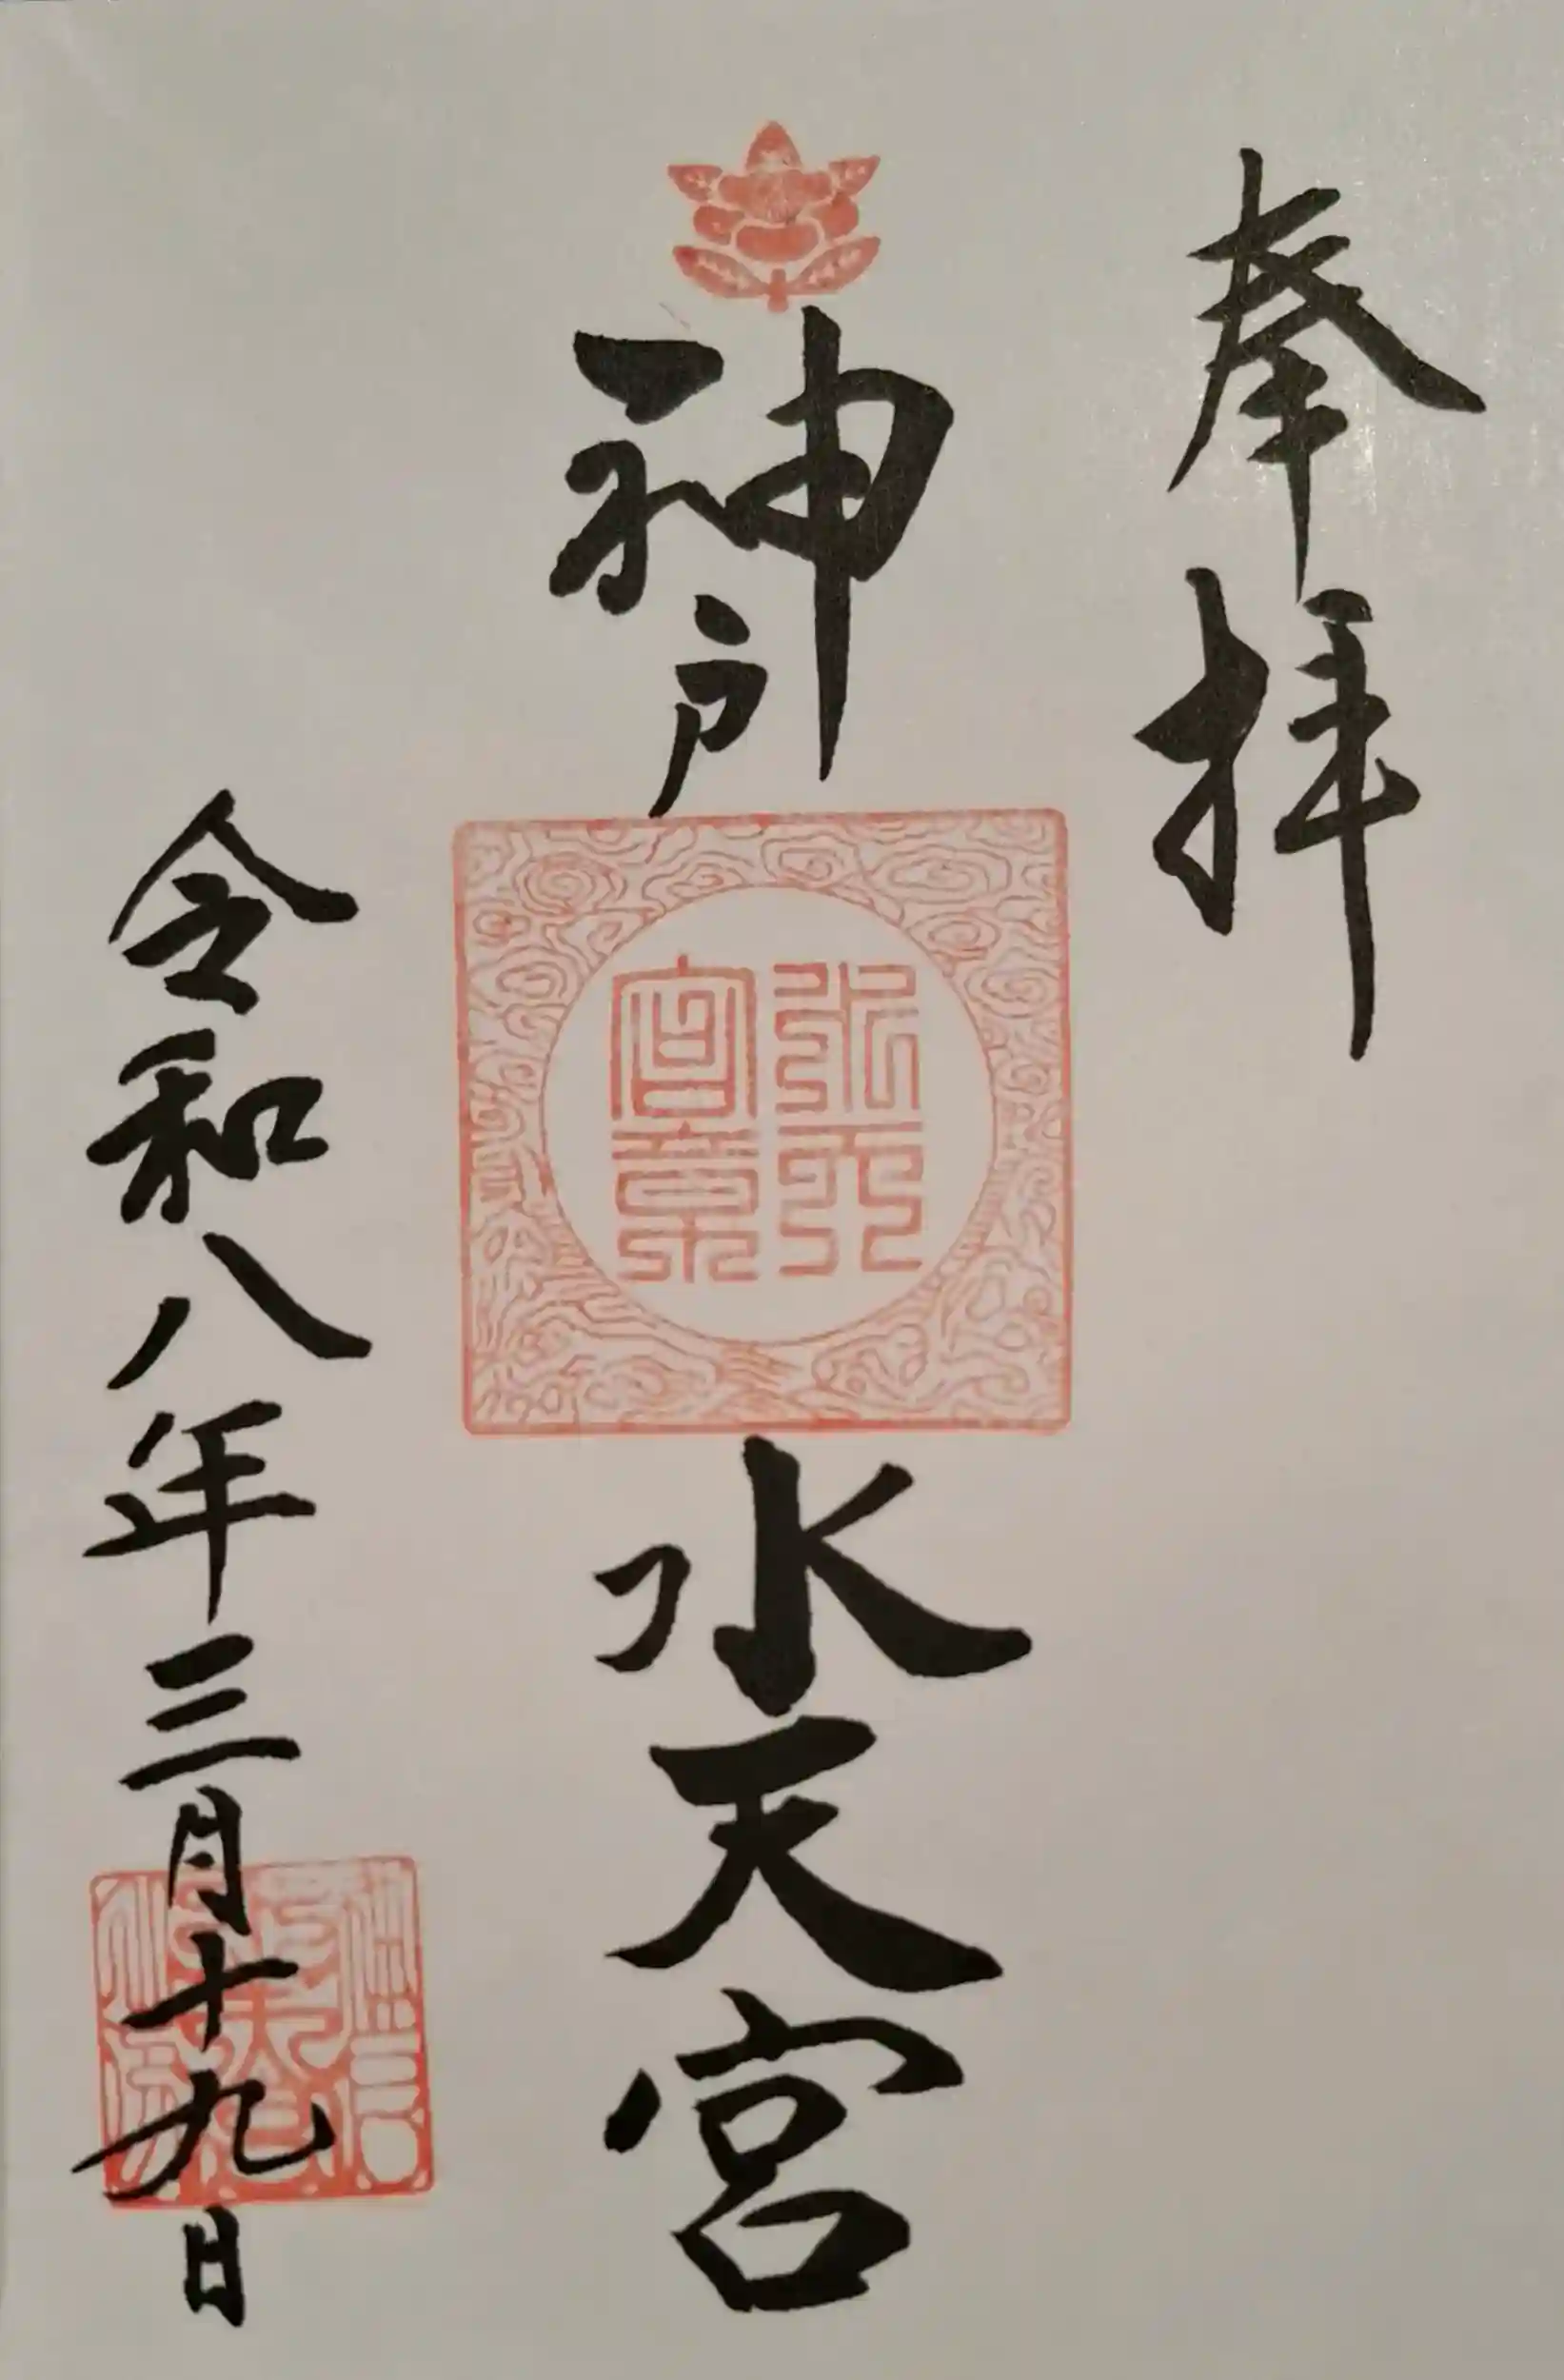 奉拝
神戸
水天宮
令和八年三月十九日